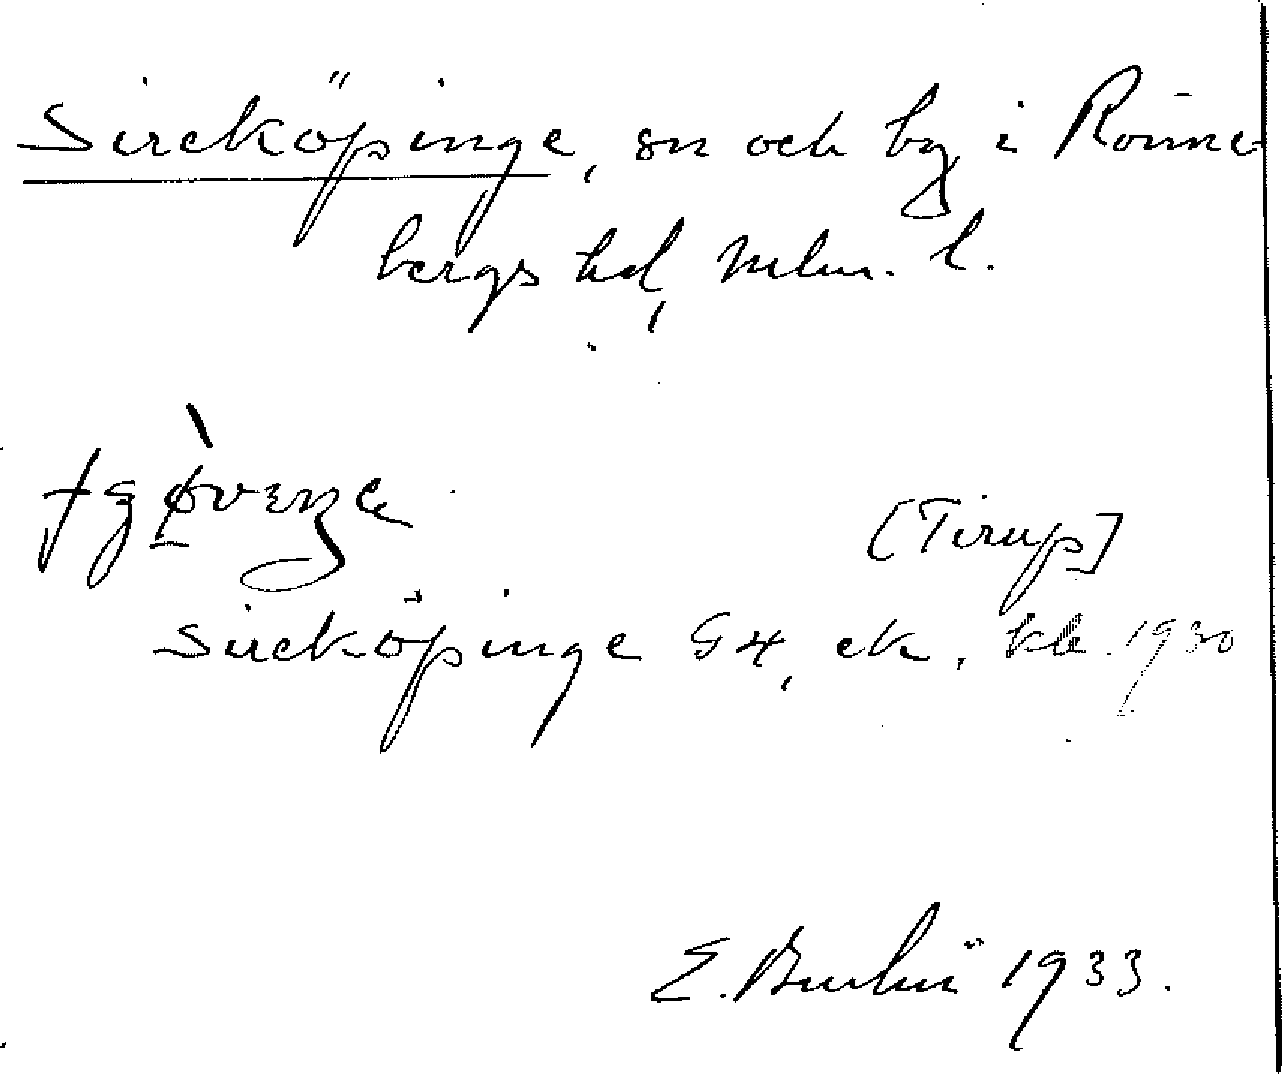 Sireköpinge, sn och by i Rönne-
bergs hd, Mlm. l.
[Tirup]
Sireköpinge G4, ek. kb. 1930
E. 1933.